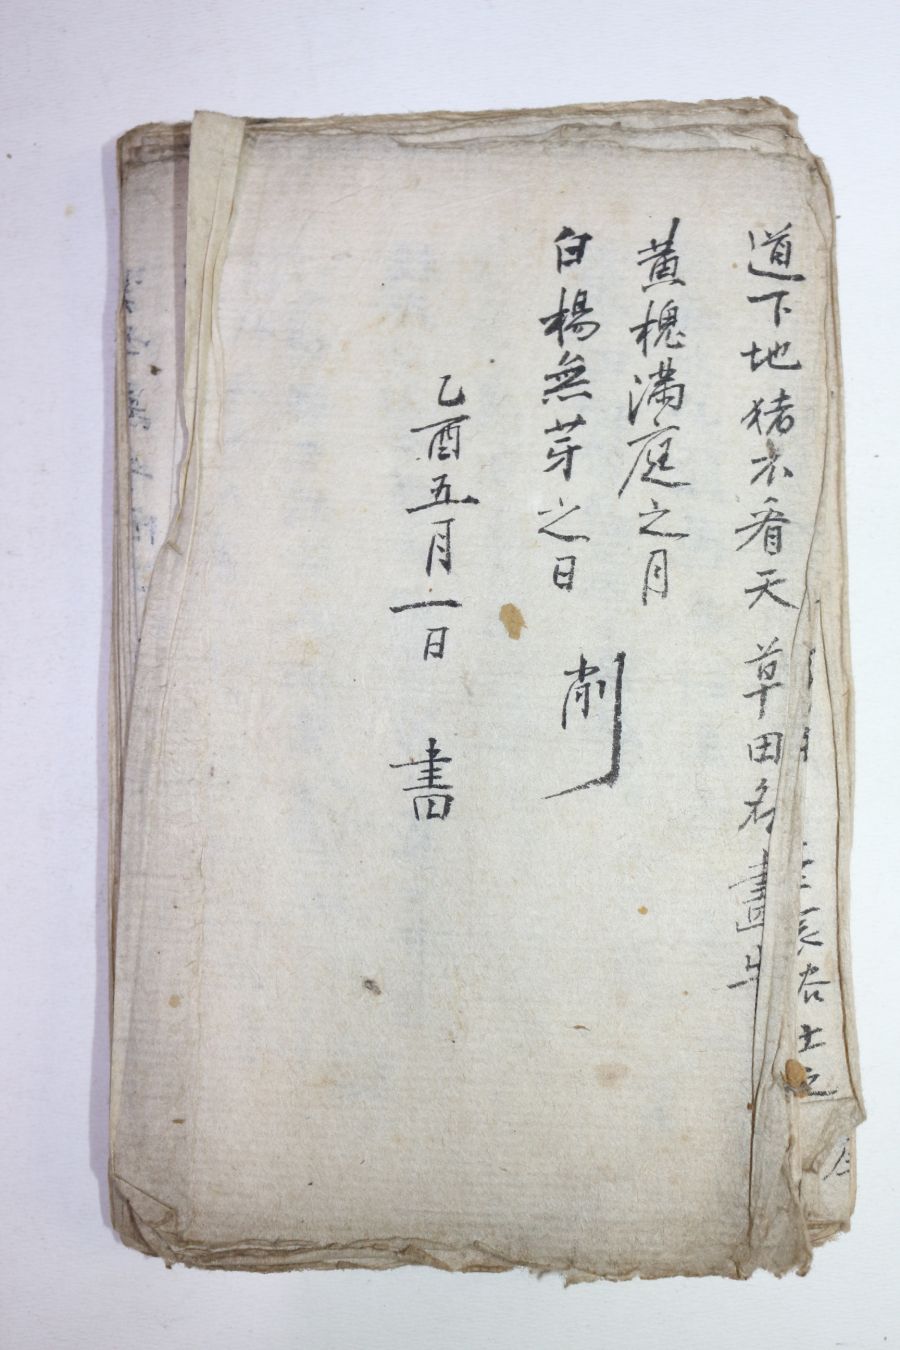 道下地猪不看天 草田名畫生
黄槐満庭之月
白楊無芽之日 削
乙酉五月一日 書